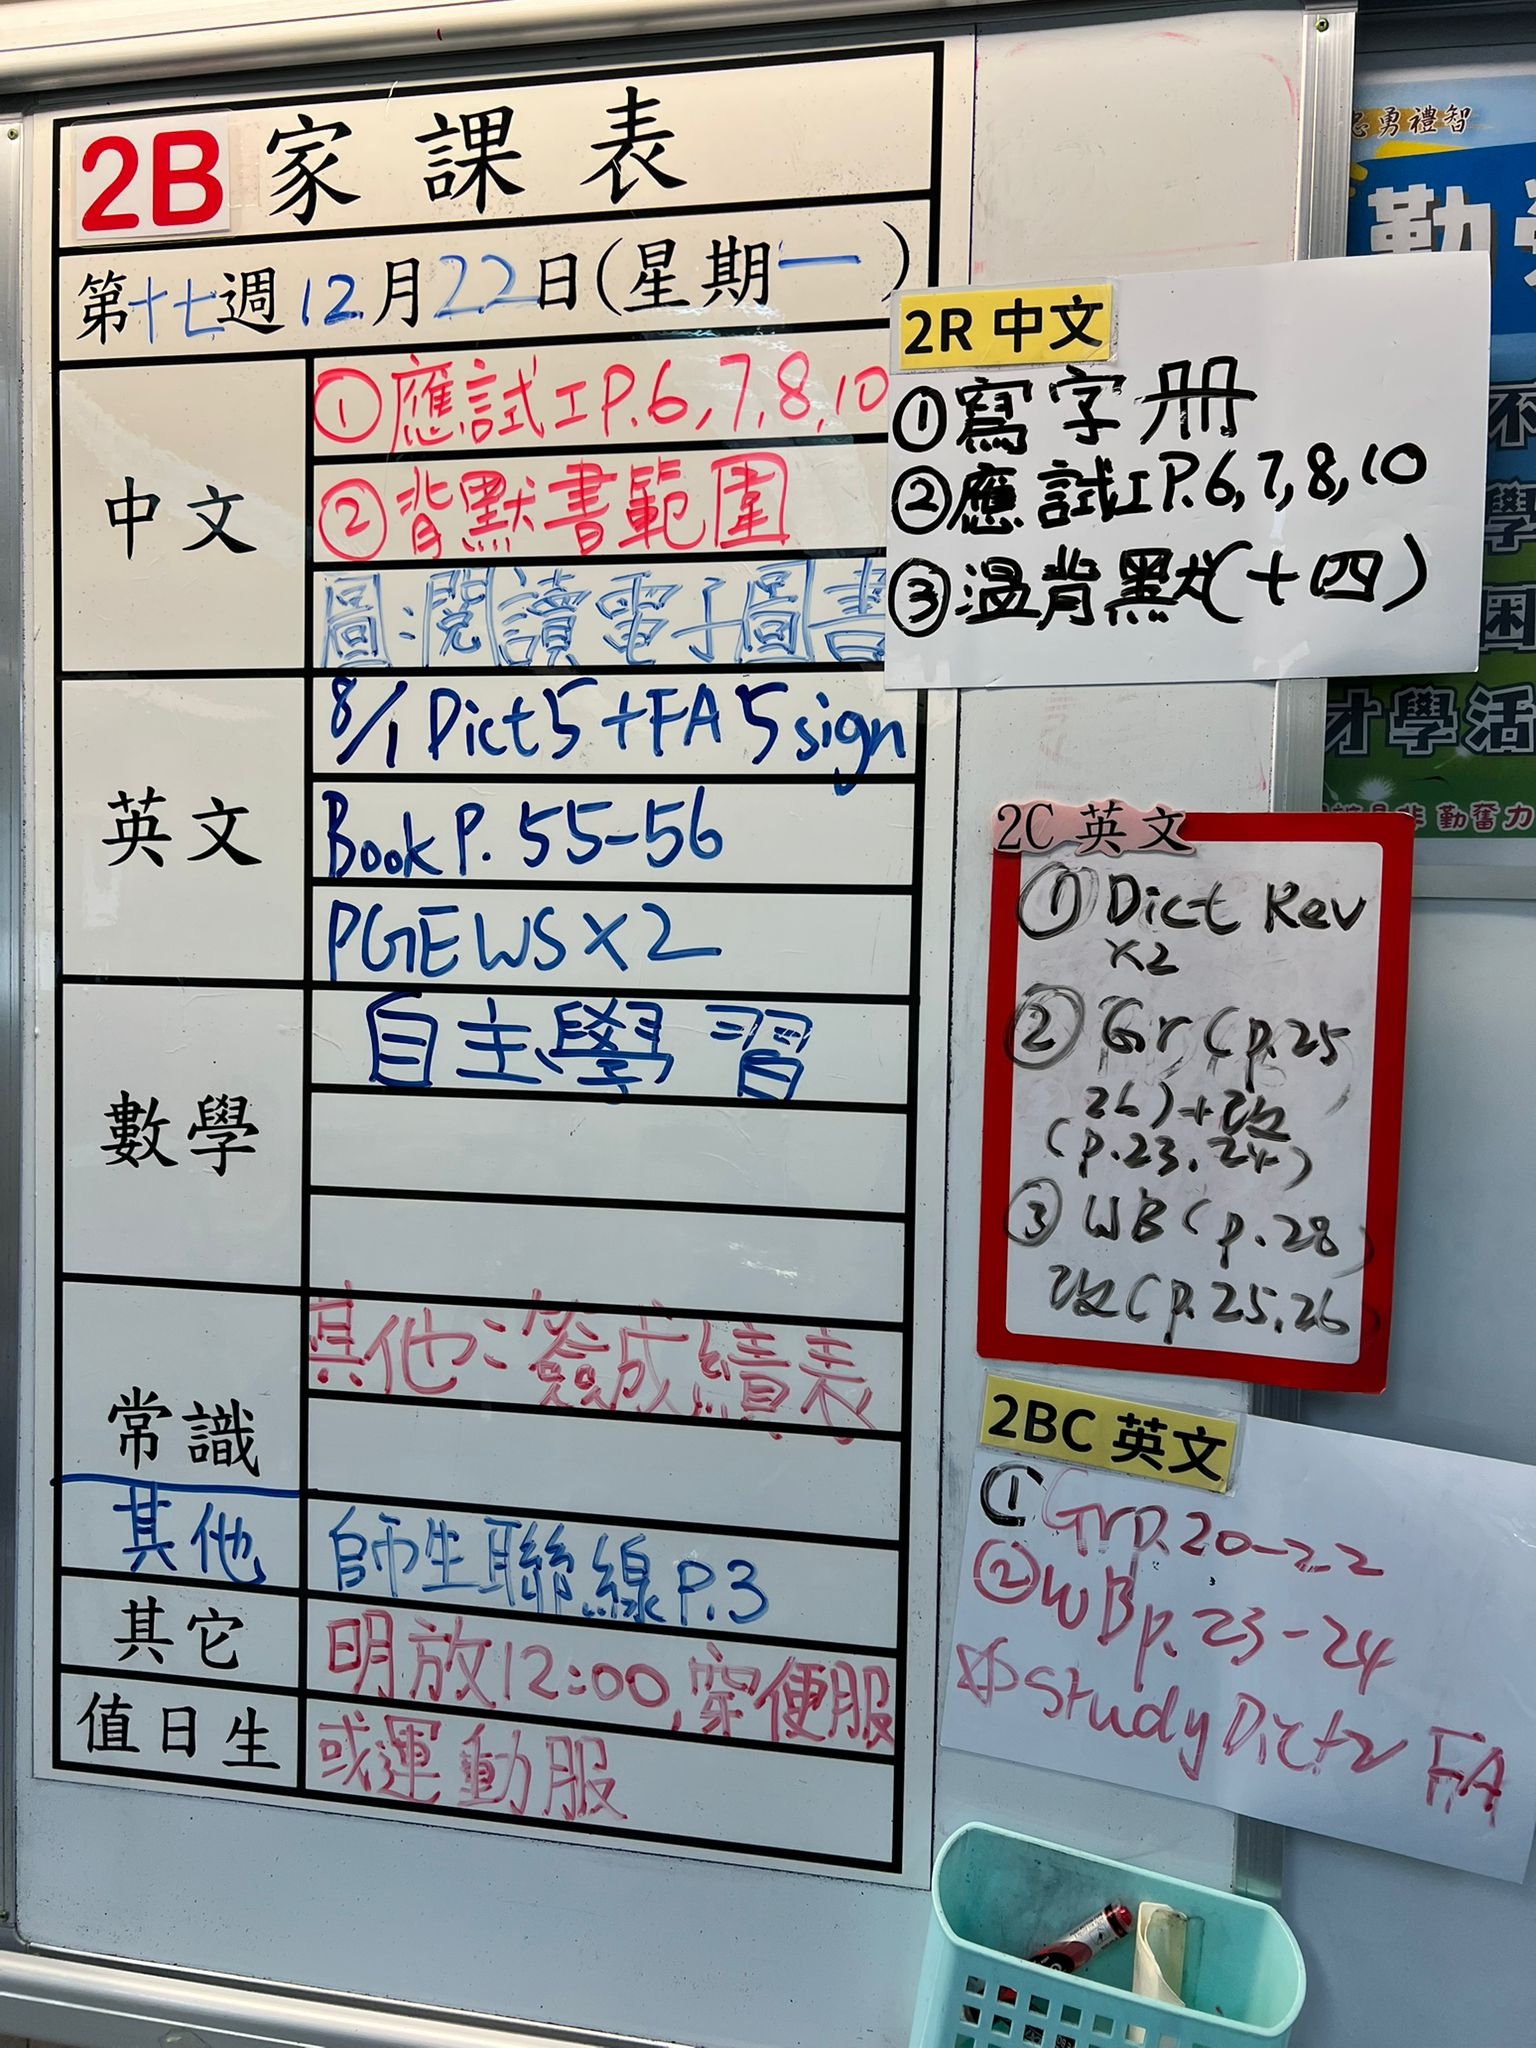 2B 家課表
第十七週12月22日(星期一)
中文
①應試工P.6,7,8,10
②背默書範圍
圖:閱讀電子圖書
英文
8/1 Dict 5+FA 5 sign
Book P. 55-56
PGEWS X2
數學
自主學習
常識
其他:簽成績表
其他
師生聯線 P.3
其它
明放12:00,穿便服
值日生
或運動服
2R 中文
①寫字册
②應試工P.6,7,8,10
③溫背默(十四)
2C 英文
① Dict Rev
x2
② Gr (p.25
26)+改
(p.23.24)
③ WB (p.28)
改(p.25.26
2BC 英文
① Gr p.20-22
② WB p.23-24
Study Dict2 FA
勇禮智
勤
不
學
困
才學活
勤奮力